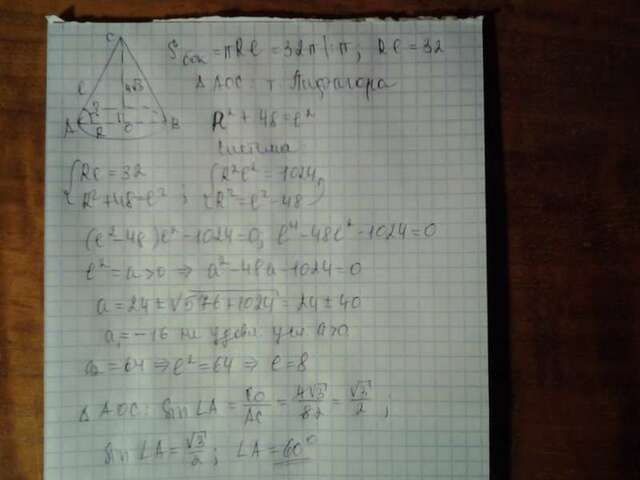 C
l
4√3
A
R
O
B
Sбок = πRl = 32π |:π; Rl = 32
Δ AOC: т. Пифагора
R² + 48 = l²
Система
{ Rl = 32
R² + 48 = l² ;
{ R²l² = 1024
R² = l² - 48
(l² - 48)l² - 1024 = 0; l⁴ - 48l² - 1024 = 0
l² = a > 0 ⇒ a² - 48a - 1024 = 0
a = 24 ± √576 + 1024 = 24 ± 40
a₁ = -16 не удовл усл a>0
a₂ = 64 ⇒ l² = 64 ⇒ l = 8
Δ AOC: Sin ∠A = CO/AC = 4√3/8 = √3/2 ;
Sin ∠A = √3/2 ; ∠A = 60°